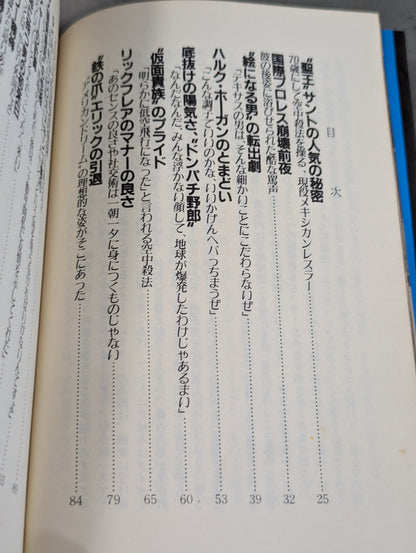 目次
“聖王”サントの人気の秘密
70歳にして空中殺法を操る、現役メキシカンレスラー……25
国際プロレス崩壊前夜
彼の後姿に浴びせられた酷な罵声……32
“絵になる男”の転出劇
「テキサスの男は、そんな細かいことにこだわらないぜ」……39
ハルク・ホーガンのとまどい
「こんな調子でいいのかな、いいかげんへバっちまうぜ」……53
底抜けの陽気さ、“トンパチ野郎”
「なんだなんだ、みんな浮かない顔して、地球が爆発したわけじゃあるまい」……60
“仮面貴族”のプライド
「明らかに低空飛行になった」と言われる空中殺法……65
リックフレアのマナーの良さ
「あのセンスの良さや社交術は一朝一夕に身につくものじゃない」……79
“鉄の爪”エリックの引退
“アメリカンドリーム”の理想的な姿がそこにあった……84